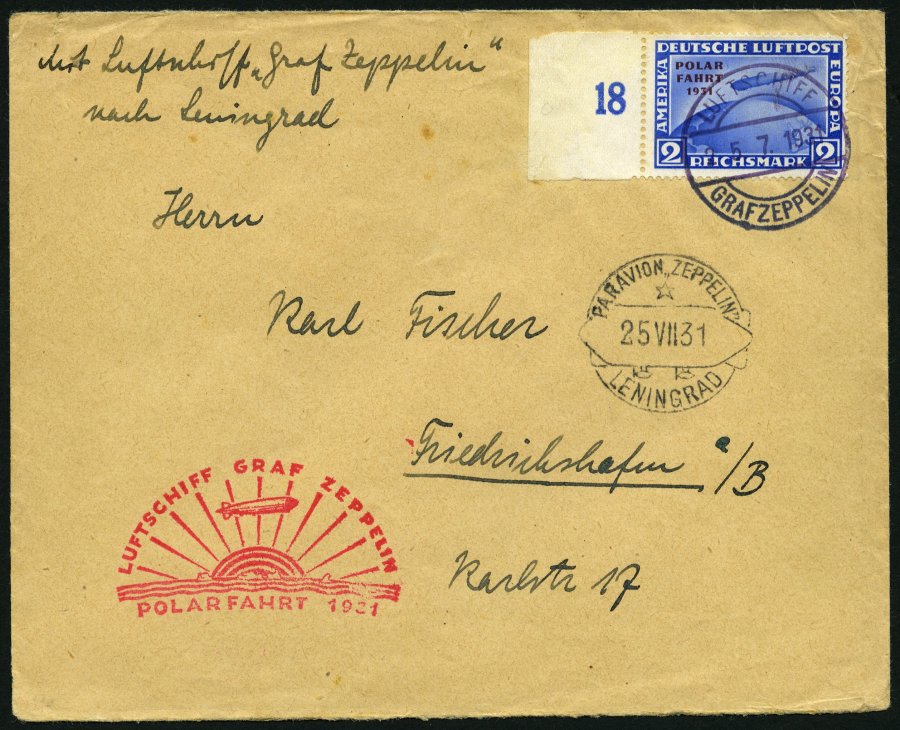 Mit Luftschiff „Graf Zeppelin“
nach Leningrad
18
DEUTSCHE LUFTPOST
AMERIKA
EUROPA
POLAR
FAHRT
1931
2 REICHSMARK 2
LUFTSCHIFF
25. 7. 1931
GRAFZEPPELIN
Herrn
Karl Fischer
Friedrichshafen a/B
Karlstr 17
PARAVION „ZEPPELIN”
25 VII 31
LENINGRAD
LUFTSCHIFF GRAF ZEPPELIN
POLARFAHRT 1931